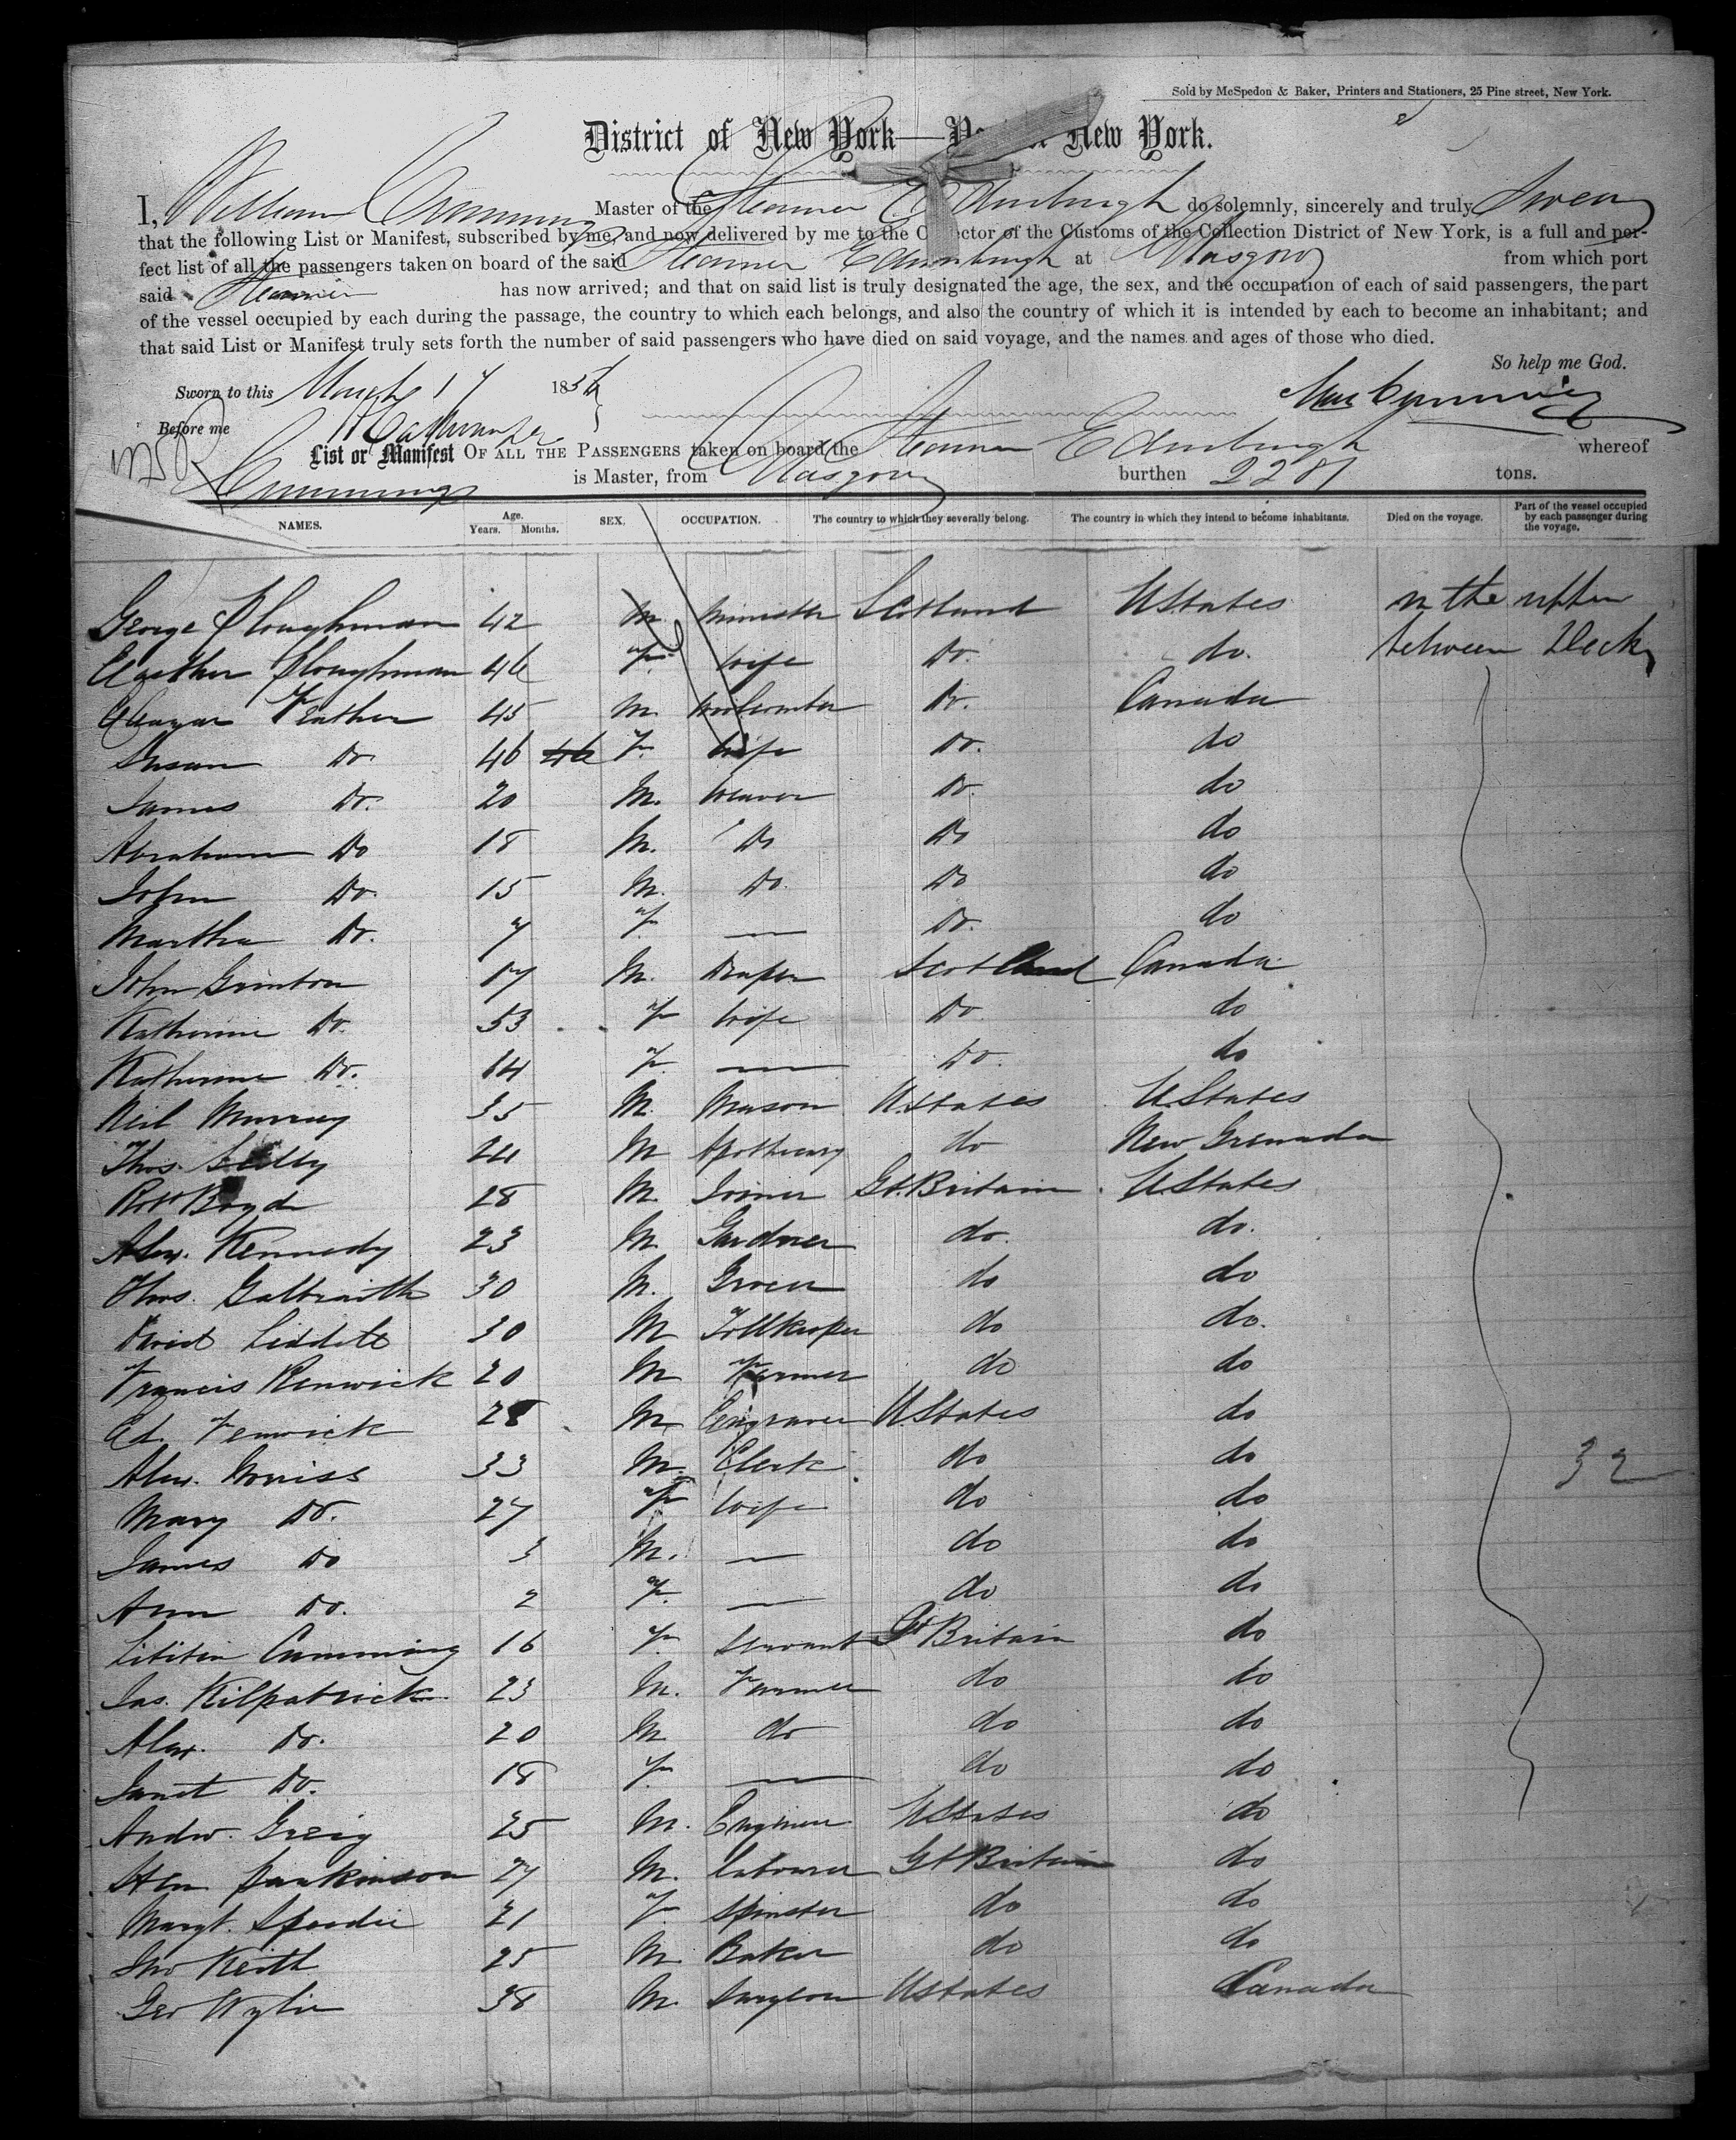 Sold by McSpedon & Baker, Printers and Stationers, 25 Pine street, New York.
District of New York— New York.
I, William Cumming Master of the Steamer Edinburgh do solemnly, sincerely and truly Swear
that the following List or Manifest, subscribed by me, and now delivered by me to the Collector of the Customs of the Collection District of New York, is a full and per-
fect list of all the passengers taken on board of the said Steamer Edinburgh at Glasgow from which port
said Steamer has now arrived; and that on said list is truly designated the age, the sex, and the occupation of each of said passengers, the part
of the vessel occupied by each during the passage, the country to which each belongs, and also the country of which it is intended by each to become an inhabitant; and
that said List or Manifest truly sets forth the number of said passengers who have died on said voyage, and the names and ages of those who died.
So help me God.
Sworn to this March 17 1856
Wm Cumming
Before me
List or Manifest OF ALL THE PASSENGERS taken on board the Steamer Edinburgh whereof
Cummings is Master, from Glasgow burthen 2281 tons.
NAMES. Age. Years. Months. SEX. OCCUPATION. The country to which they severally belong. The country in which they intend to become inhabitants. Died on the voyage. Part of the vessel occupied by each passenger during the voyage.
George Ploughman 42 M Minister Scotland UStates in the upper
Ploughman 46 F. wife Do. do. between Decks
Feather 45 M. Do. Canada
Susan Do. 46 F. wife Do. do
James Do. 20 M. weaver Do. do
Abraham Do 18 M. Do Do do
John Do. 15 M. Do. Do do
Martha Do. 7 F. — Do. do
John Grinton 17 M. Draper Scotland Canada
Katherine Do. 53 F wife Do. do
Katherine Do. 14 F. — Do. do
Neil Murray 35 M. Mason U.States U.States
Thos. 24 M Apothecary do New Grenada
Robt Boyd 28 M. Joiner Gt. Britain UStates
Alex. Kennedy 23 M Gardner do. do.
Thos. Galbraith 30 M. Grocer do do
David Liddell 30 M Tollkeeper do do.
Francis Renwick 20 M Farmer do do
Ed. Fenwick 28 M Engraver UStates do
Alex. Morriss 33 M. Clerk do do
32
Mary Do. 27 F wife do do
James Do 3 M. — do do
Ann Do. 2 F. — do do
Lititia Cumming 16 F. Servant Gt Britain do
Jas. Kilpatrick 23 M. Farmer do do
Alex. Do. 20 M do do do
Janet Do. 18 F. — do do
Andw. Greig 25 M. Engineer UStates do
Parkinson 27 M. Labourer Gt Britain do
Margt. Speedie 21 F. Spinster do do
Jno Keith 25 M. Baker do do
Geo Wylie 38 M. Surgeon UStates Canada